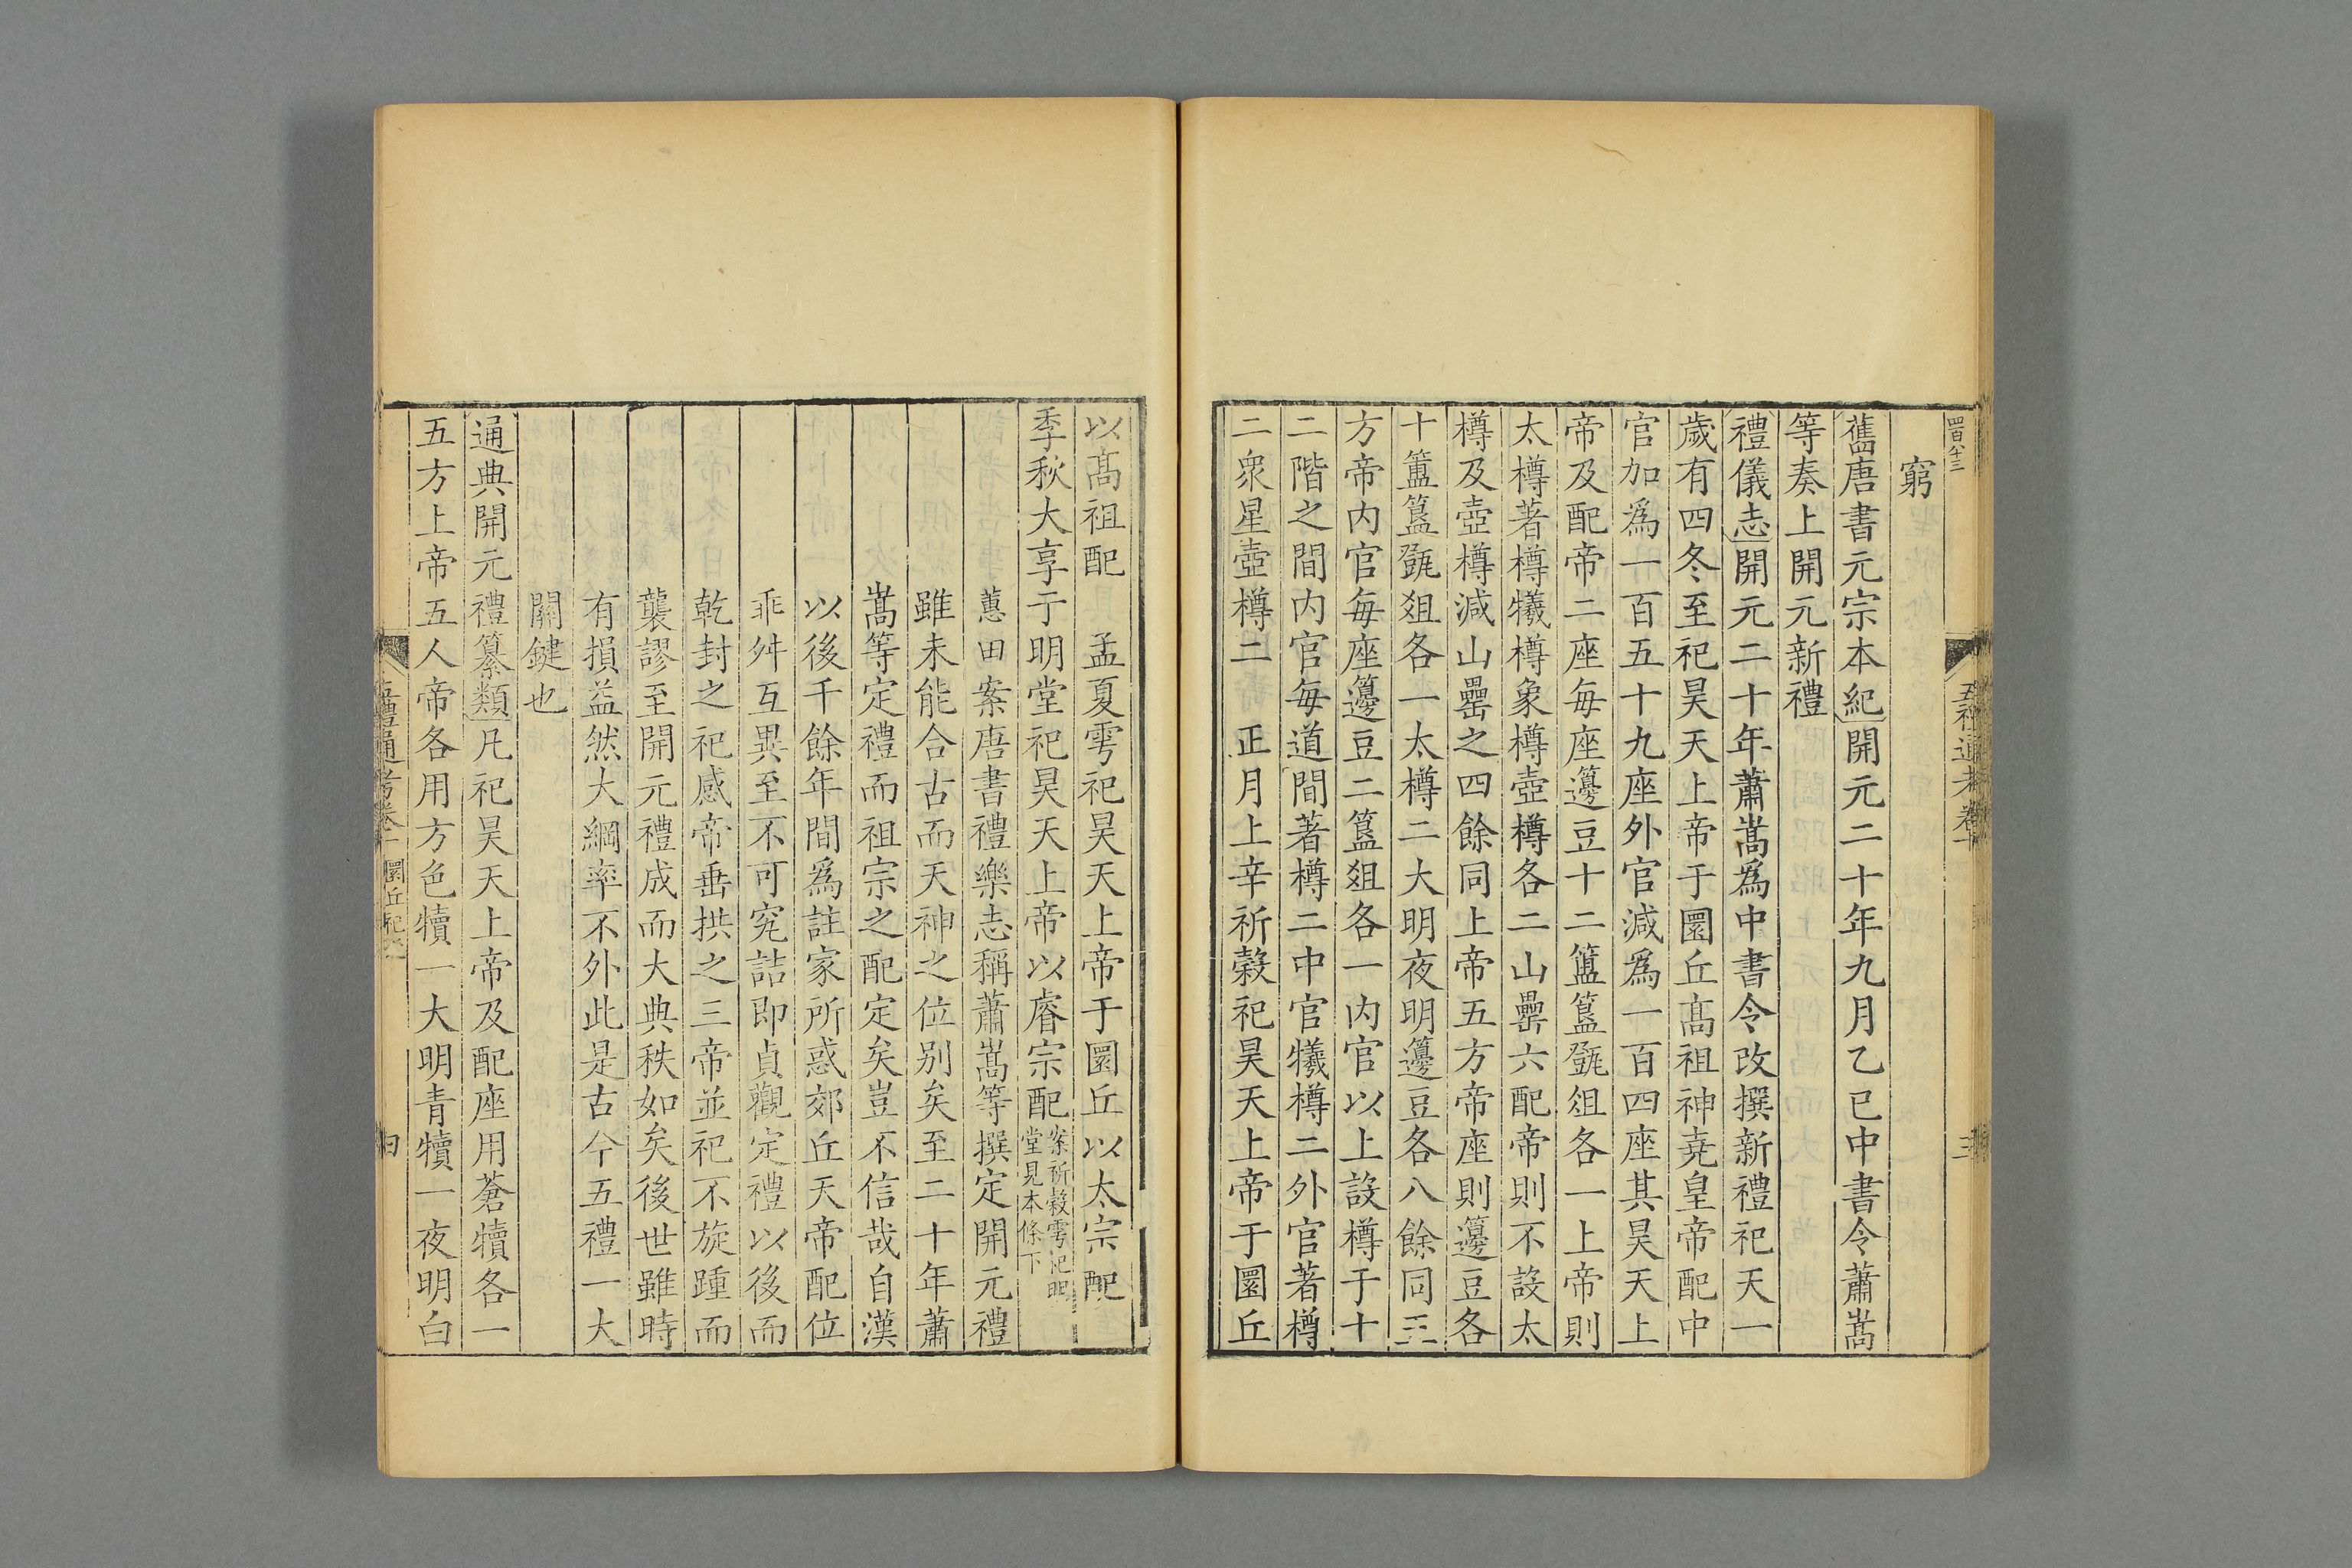 四百八十三
五禮通考卷十
三
窮
舊唐書元宗本紀開元二十年九月乙巳中書令蕭嵩
等奏上開元新禮
禮儀志開元二十年蕭嵩爲中書令改撰新禮祀天一
歲有四冬至祀昊天上帝于圜丘髙祖神堯皇帝配中
官加爲一百五十九座外官減爲一百四座其昊天上
帝及配帝二座每座籩豆十二簠簋㽅俎各一上帝則
太樽著樽犧樽象樽壺樽各二山罍六配帝則不設太
樽及壺樽減山罍之四餘同上帝五方帝座則籩豆各
十簠簋㽅俎各一太樽二大明夜明籩豆各八餘同五
方帝内官每座籩豆二簋俎各一内官以上設樽于十
二階之間内官每道間著樽二中官犧樽二外官著樽
二衆星壺樽二　正月上辛祈穀祀昊天上帝于圜丘
以髙祖配　孟夏雩祀昊天上帝于圜丘以太宗配
季秋大享于明堂祀昊天上帝以睿宗配案祈穀雩祀明
堂見本條下
蕙田案唐書禮樂志稱蕭嵩等撰定開元禮
雖未能合古而天神之位别矣至二十年蕭
嵩等定禮而祖宗之配定矣豈不信哉自漢
以後千餘年間爲註家所惑郊丘天帝配位
乖舛互異至不可究詰即貞觀定禮以後而
乾封之祀感帝垂拱之三帝並祀不旋踵而
襲謬至開元禮成而大典秩如矣後世雖時
有損益然大綱率不外此是古今五禮一大
關鍵也
通典開元禮纂類凡祀昊天上帝及配座用蒼犢各一
五方上帝五人帝各用方色犢一大明青犢一夜明白
五禮通考卷十 圜丘祀天
四